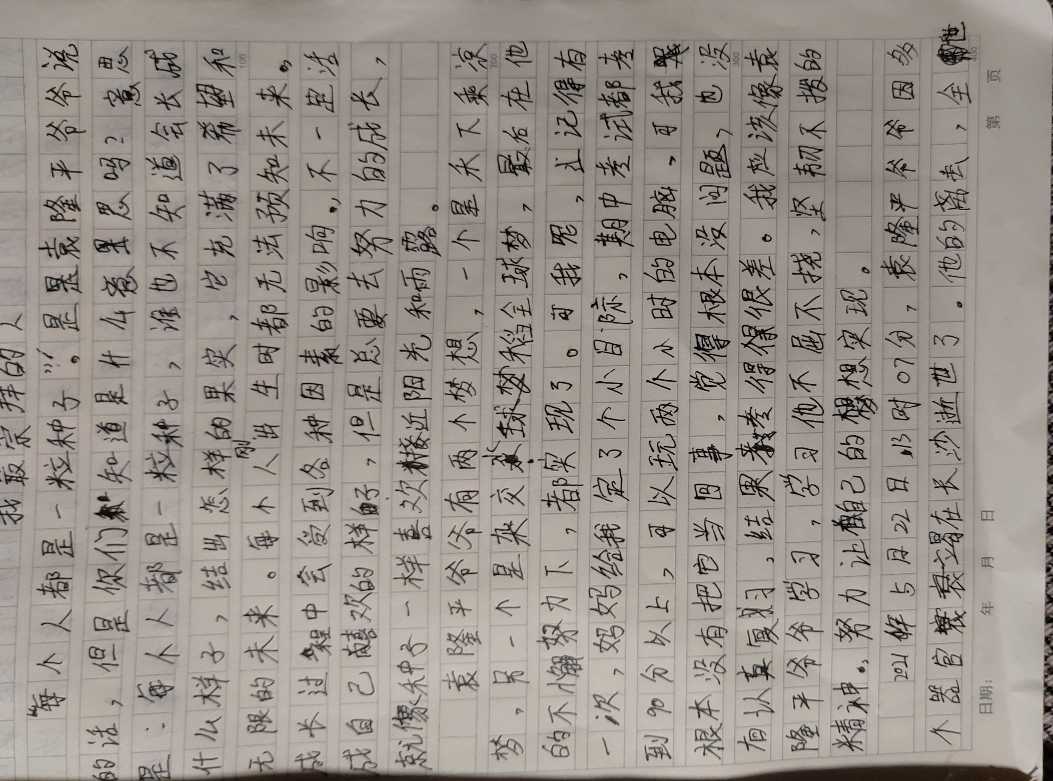 我最崇拜的人
“每个人都是一粒种子”。是袁隆平爷爷说
的话，但是你们知道是什么意思吗？意思
是：每个人都是一粒种子，谁也不知道会长成
什么样子，结出怎样的果实，它充满了希望和
无限的未来。每个人刚出生时都无法预知未来。
成长过程中会受到各种因素的影响，不一定活
成自己喜欢的样子，但是总要去努力的成长，
就像禾种子一样喜欢接近阳光和雨露。
袁隆平爷爷有两个梦想，一个是禾下乘凉
梦，另一个是杂交水稻全球梦，最后在他
的不懈努力下，都实现了。可我呢，记得有
一次，妈妈给我定了个小目标，期中考试都考
到90分以上，可以玩两个小时的电脑。可我
根本没有把它当回事，觉得根本没问题，也没
有认真复习，结果考得很差。我应该像袁
隆平爷爷学习，学习他不屈不挠，坚韧不拨的
精神。努力让自己的梦想实现。
2021年5月22日13时07分，袁隆平爷爷因多
个器官衰竭在长沙逝世了。他的离去，全世
第 页
日期： 年 月 日